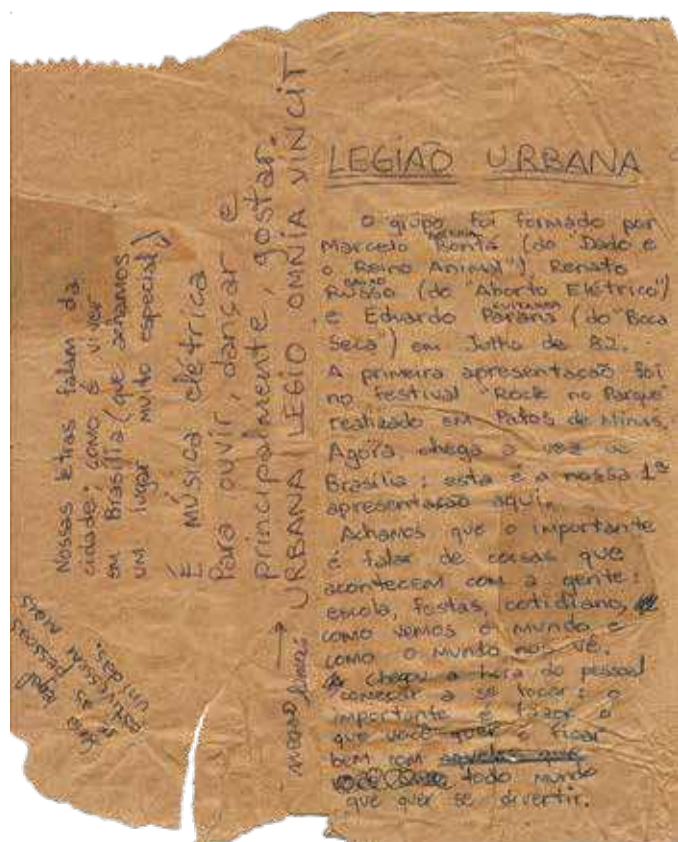 LEGIÃO URBANA
O grupo foi formado por
Marcelo Bonfá (do "Dado e
o Reino Animal"), Renato
Russo (do "Aborto Elétrico")
e Eduardo Paraná (do "Boca
Seca") em Julho de 82.
A primeira apresentação foi
no festival "Rock no Parque"
realizado em Patos de Minas.
Agora, chega a vez de
Brasília: esta é a nossa 1ª
apresentação aqui.
Achamos que o importante
é falar de coisas que
acontecem com a gente:
escola, festas, cotidiano,
como vemos o mundo e
como o mundo nos vê.
Chegou a hora do pessoal
começar a se tocar: o
importante é fazer o
que você quer e ficar
bem com
todo mundo
que quer se divertir.
Nossas letras falam da
cidade; como é viver
em Brasília (que achamos
um lugar muito especial)
É música elétrica
Para ouvir, dançar e
principalmente, gostar.
URBANA LEGIO OMNIA VINCIT
seria legal
se as pessoas
estivessem mais
unidas.